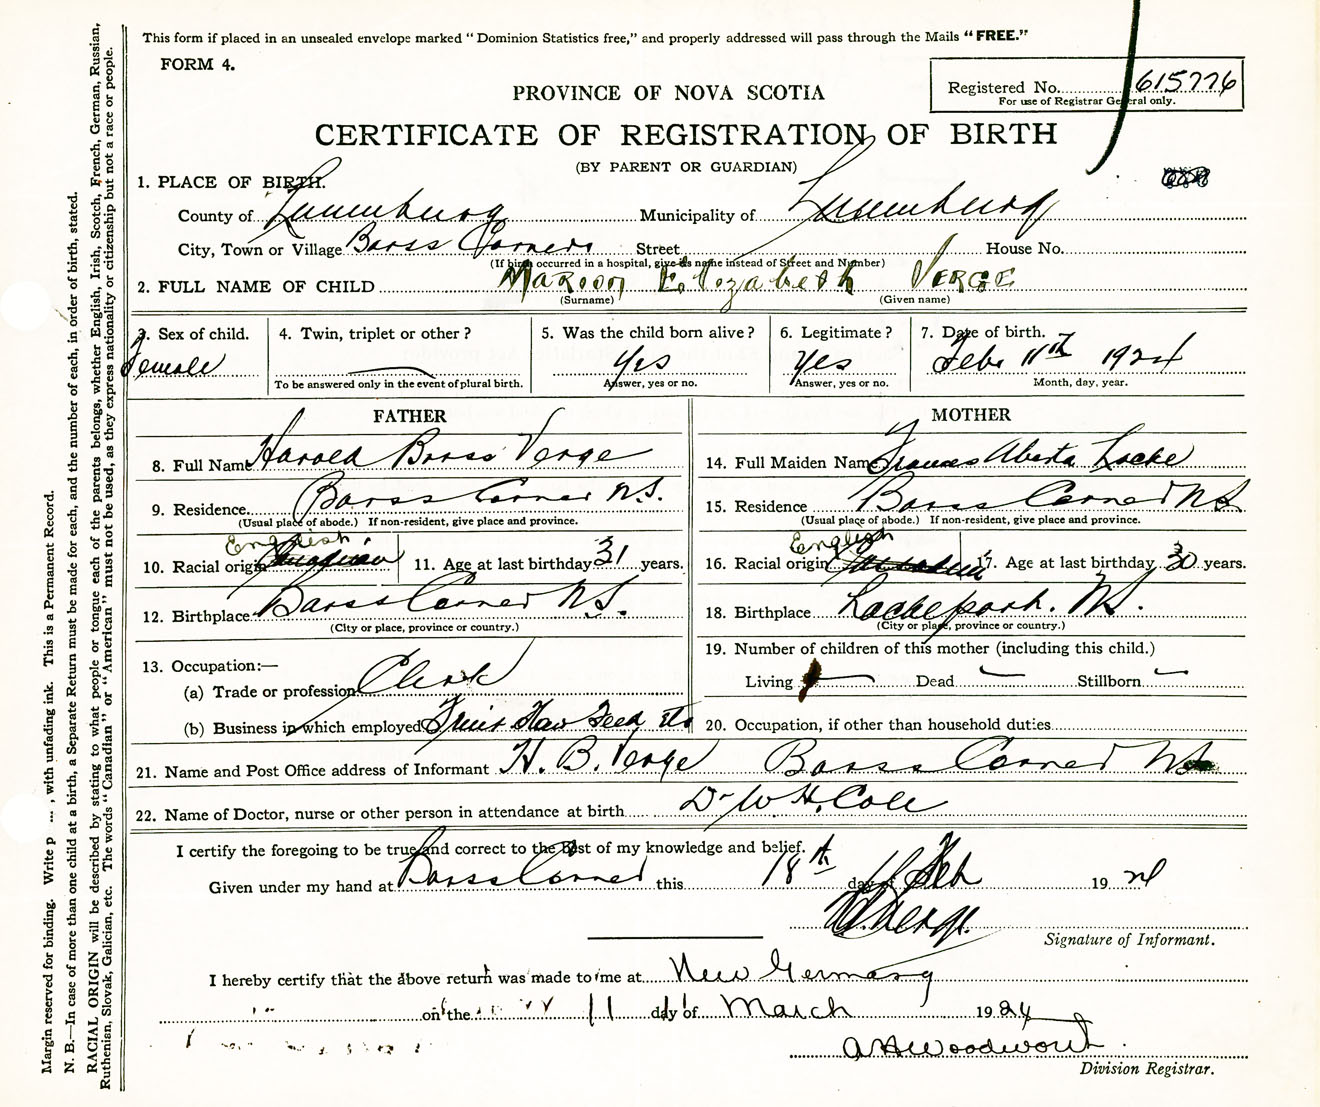 This form if placed in an unsealed envelope marked "Dominion Statistics free," and properly addressed will pass through the Mails "FREE."
FORM 4.
Registered No. 615776
For use of Registrar General only.
PROVINCE OF NOVA SCOTIA
CERTIFICATE OF REGISTRATION OF BIRTH
(BY PARENT OR GUARDIAN)
1. PLACE OF BIRTH.
County of Lunenburg Municipality of Lunenburg
City, Town or Village Barss Corners Street House No.
(If birth occurred in a hospital, give its name instead of Street and Number)
2. FULL NAME OF CHILD Marion Elizabeth Verge
(Surname) (Given name)
3. Sex of child. 4. Twin, triplet or other? 5. Was the child born alive? 6. Legitimate? 7. Date of birth.
Female Yes Yes Feb 11th 1924
To be answered only in the event of plural birth. Answer, yes or no. Answer, yes or no. Month, day, year.
FATHER
8. Full Name Harold Barss Verge
9. Residence. Barss Corner N.S.
(Usual place of abode.) If non-resident, give place and province.
English
10. Racial origin Canadian 11. Age at last birthday 31 years.
12. Birthplace Barss Corner N.S.
(City or place, province or country.)
13. Occupation:—
(a) Trade or profession Clerk
(b) Business in which employed Feed etc
MOTHER
14. Full Maiden Name Frances Alberta Locke
15. Residence Barss Corner N.S.
(Usual place of abode.) If non-resident, give place and province.
English
16. Racial origin 17. Age at last birthday 30 years.
18. Birthplace Lockeport. N.S.
(City or place, province or country.)
19. Number of children of this mother (including this child.)
Living Dead Stillborn
20. Occupation, if other than household duties
21. Name and Post Office address of Informant H. B. Verge Barss Corner N.S.
22. Name of Doctor, nurse or other person in attendance at birth Dr W. H. Cole
I certify the foregoing to be true and correct to the Best of my knowledge and belief.
Given under my hand at Barss Corner this 18th day of Feb 1924
H.B. Verge.
Signature of Informant.
I hereby certify that the above return was made to me at New Germany
on the 11 day of March 1924
A H Woodworth
Division Registrar.
Margin reserved for binding. Write p ..., with unfading ink. This is a Permanent Record.
N. B.—In case of more than one child at a birth, a Separate Return must be made for each, and the number of each, in order of birth, stated.
RACIAL ORIGIN will be described by stating to what people or tongue each of the parents belongs, whether English, Irish, Scotch, French, German, Russian,
Ruthenian, Slovak, Galician, etc. The words "Canadian" or "American" must not be used, as they express nationality or citizenship but not a race or people.